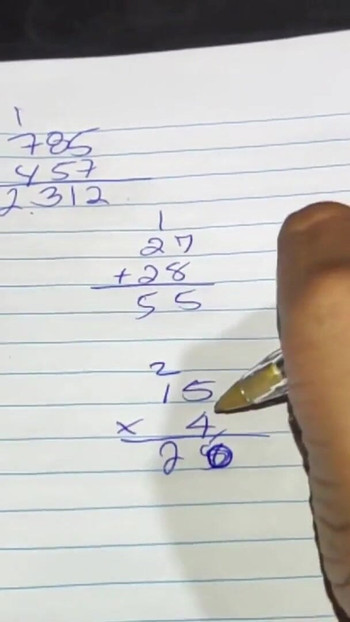 1
785
457
2312
1
27
+28
55
2
15
x 4
2